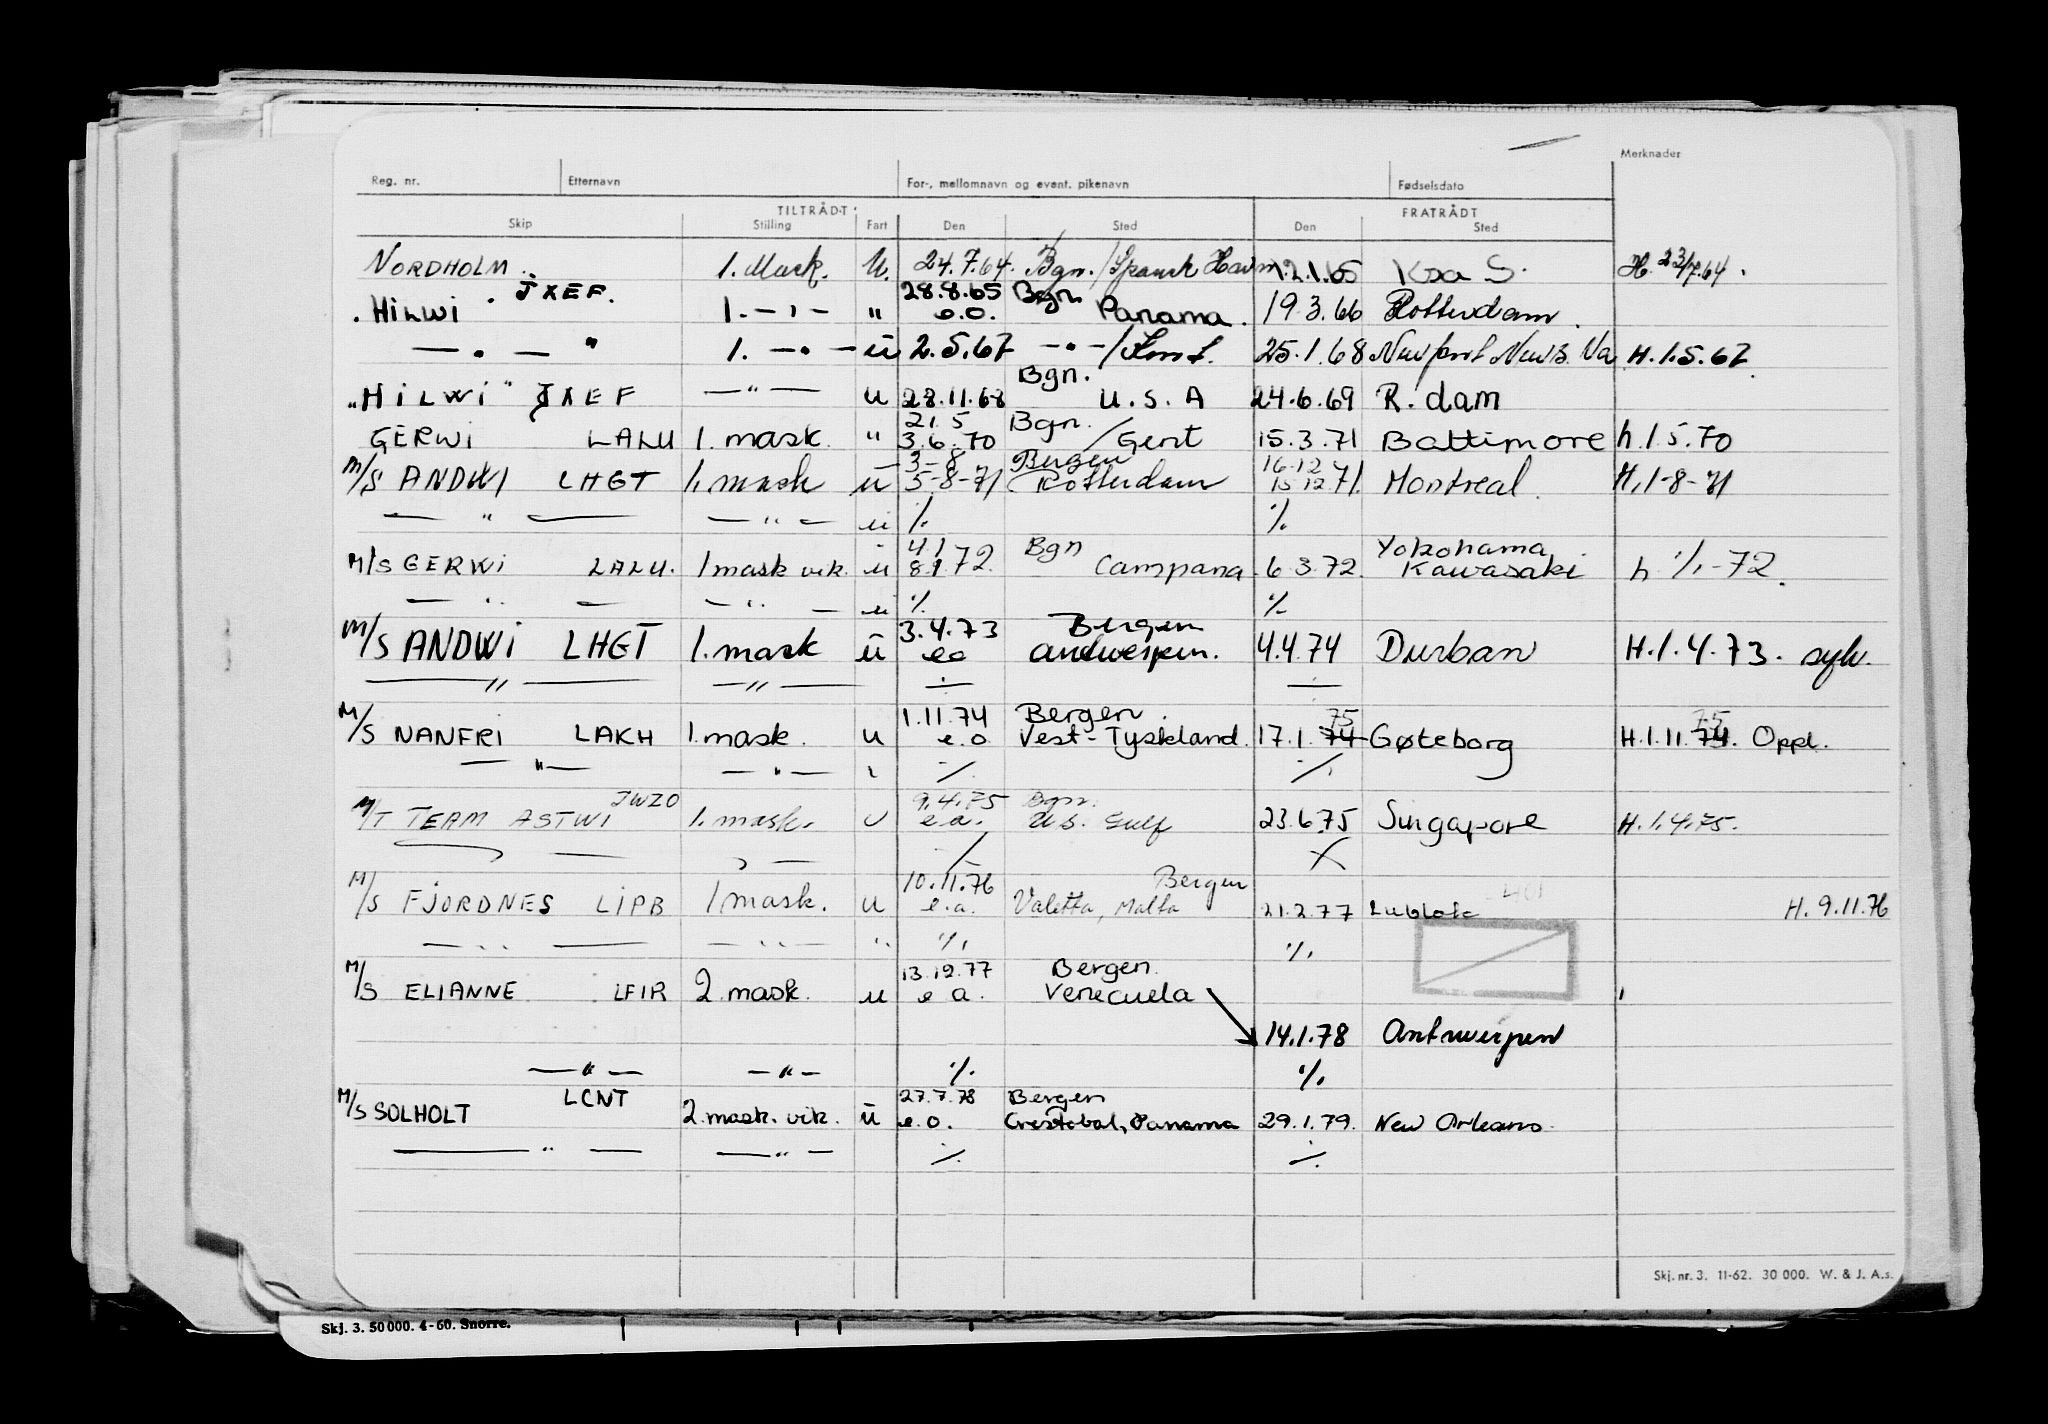 Merknader
Reg. nr. Etternavn For-, mellomnavn og event. pikenavn Fødselsdato
TILTRÅDT FRATRÅDT
Skip Stilling Fart Den Sted Den Sted
NORDHOLM 1. Mask. U. 24.7.64. Bgn./Spansk Havn 12.1.65 Ksa S. H. 23/7.64.
JXEF. 28.8.65 Bgn
"HILWI" 1. — " — " e.o. Panama. 19.3.66 Rotterdam.
— " — " 1. — " — u 2.5.67 — " — / 25.1.68 Newport News. Va H.1.5.67.
Bgn.
"HILWI" JXEF — " — u 28.11.68 U.S.A 24.6.69 R.dam
21.5 Bgn.
GERWI LALU 1. mask. " 3.6.70 /Gent 15.3.71 Baltimore h.1.5.70
3-8 Bergen 16.12
M/S ANDWI LHGT 1. mask u 5-8-71 Rotterdam 15.12.71. Montreal. H.1-8-71
— " — — " — u % %
4.1 Bgn Yokohama
M/S GERWI LALU. 1 mask vik. u 8.1.72. Campana 6.3.72. Kawasaki h. 1/1-72.
— " — — " — u % %
3.4.73 Bergen
M/S ANDWI LHGT 1. mask u eo antwerpen. 4.4.74 Durban H.1.4.73. sylv.
— " — — " — ÷ ÷
1.11.74 Bergen. 75 75
M/S NANFRI LAKH 1. mask. u e.o Vest-Tyskland. 17.1.74 Gøteborg H.1.11.74. Oppl.
— " — — " — " % %
JWZO 9.4.75 Bgn.
M/T TEAM ASTWI 1. mask. u e.a. U.S. Gulf 23.6.75 Singapore H.1.4.75.
— " — % %
10.11.76 Bergen
M/S FJORDNES LIPB 1 mask. u e.a. Valetta, Malta 21.2.77 H. 9.11.76
— " — — " — " % %
13.12.77 Bergen.
M/S ELIANNE LFIR 2. mask. u e a. Venecuela
14.1.78 Antwerpen
— " — — " — % %
LCNT 27.7.78 Bergen
M/S SOLHOLT 2. mask. vik. u e.o. Crestobal, Panama 29.1.79. New Orleans.
— " — — " — % %
Skj. nr. 3. 11-62. 30 000. W. & J. A.s.
Skj. 3. 50 000. 4-60. Snorre.